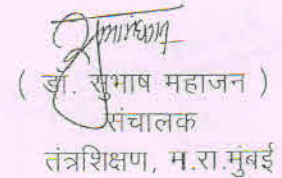 ( डॉ. सुभाष महाजन )
संचालक
तंत्रशिक्षण, म.रा.मुंबई